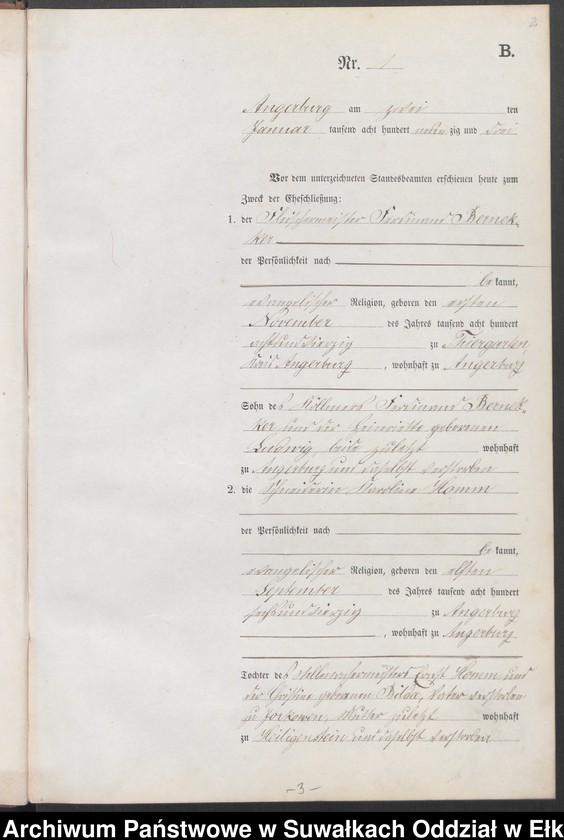 2
B.
Nr. 1
Angerburg am zwei ten
Januar tausend acht hundert neun zig und drei
Vor dem unterzeichneten Standesbeamten erschienen heute zum
Zweck der Eheschließung:
1. der Fleischermeister Ferdinand Bemek-
ker
der Persönlichkeit nach
be kannt,
evangelischer Religion, geboren den ersten
November des Jahres tausend acht hundert
achtundvierzig zu Thiergarten,
Kreis Angerburg, wohnhaft zu Angerburg
Sohn des Köllmers Ferdinand Bemek-
ker und der Heinriette geborenen
Ludwig, beide zuletzt wohnhaft
zu Angerburg und daselbst verstorben
2. die Schneiderin Karoline Homm
der Persönlichkeit nach
be kannt,
evangelischer Religion, geboren den elften
September des Jahres tausend acht hundert
sechsundvierzig zu Angerburg
, wohnhaft zu Angerburg
Tochter des Stellmachermeisters Ernst Homm und
der Christine geborenen Bilda, Vater verstorben
zu Jorkowen, Mutter zuletzt wohnhaft
zu Heiligenstein und daselbst verstorben
-3-
Archiwum Państwowe w Suwałkach Oddział w Ełk